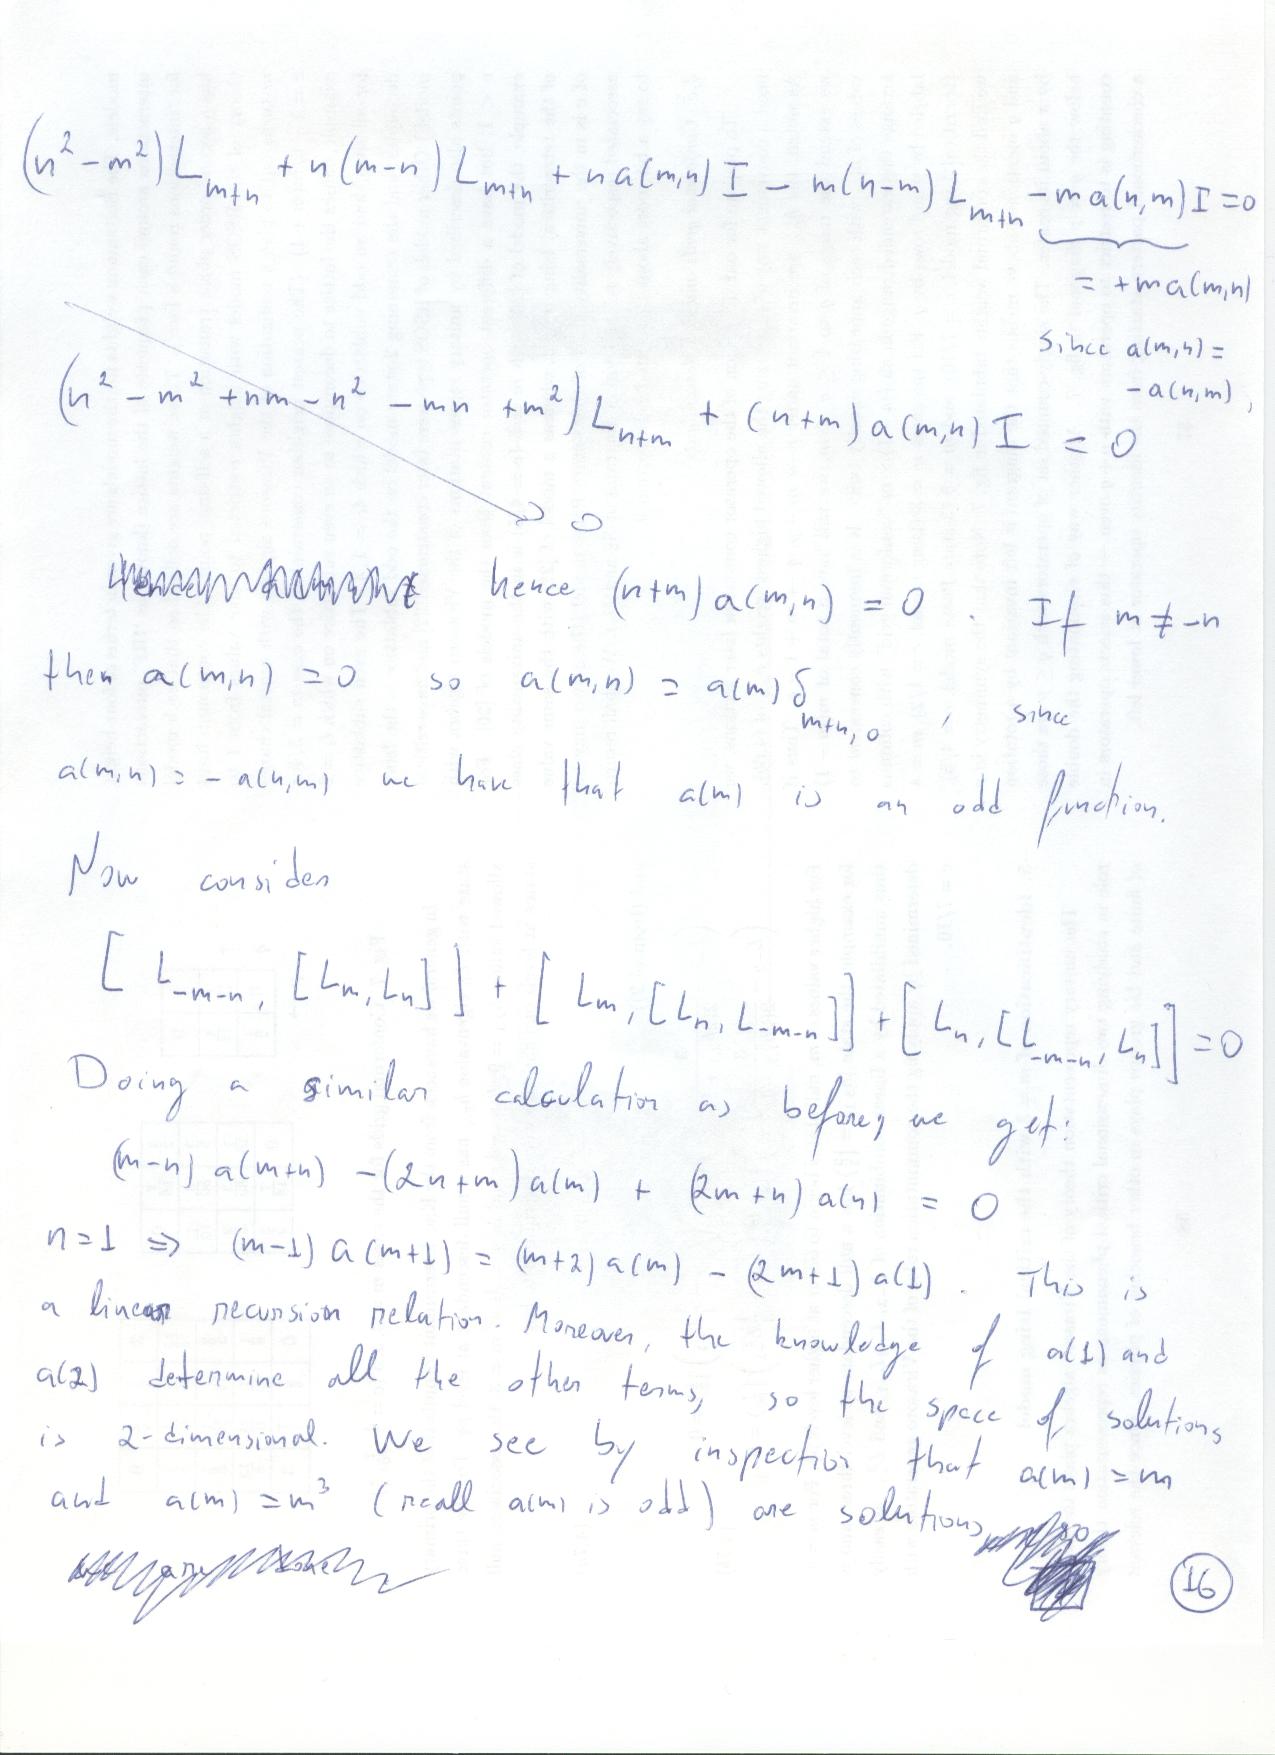 (n² - m²) L_{m+n} + n(m-n) L_{m+n} + n a(m,n) I - m(n-m) L_{m+n} - m a(n,m) I = 0
= + m a(m,n)
since a(m,n) =
- a(n,m),
(n² - m² + nm - n² - mn + m²) L_{n+m} + (n+m) a(m,n) I = 0
→ 0
hence (n+m) a(m,n) = 0 . If m ≠ -n
then a(m,n) = 0 so a(m,n) = a(m) δ_{m+n,0} , since
a(m,n) = - a(n,m) we have that a(m) is an odd function.
Now consider
[ L_{-m-n}, [L_m, L_n] ] + [ L_m, [L_n, L_{-m-n}]] + [ L_n, [L_{-m-n}, L_n]] = 0
Doing a similar calculation as before, we get:
(m-n) a(m+n) - (2n+m) a(m) + (2m+n) a(n) = 0
n=1 ⇒ (m-1) a(m+1) = (m+2) a(m) - (2m+1) a(1) . This is
a linear recursion relation. Moreover, the knowledge of a(1) and
a(2) determine all the other terms, so the space of solutions
is 2-dimensional. We see by inspection that a(m) = m
and a(m) = m³ (recall a(m) is odd) are solutions,
16